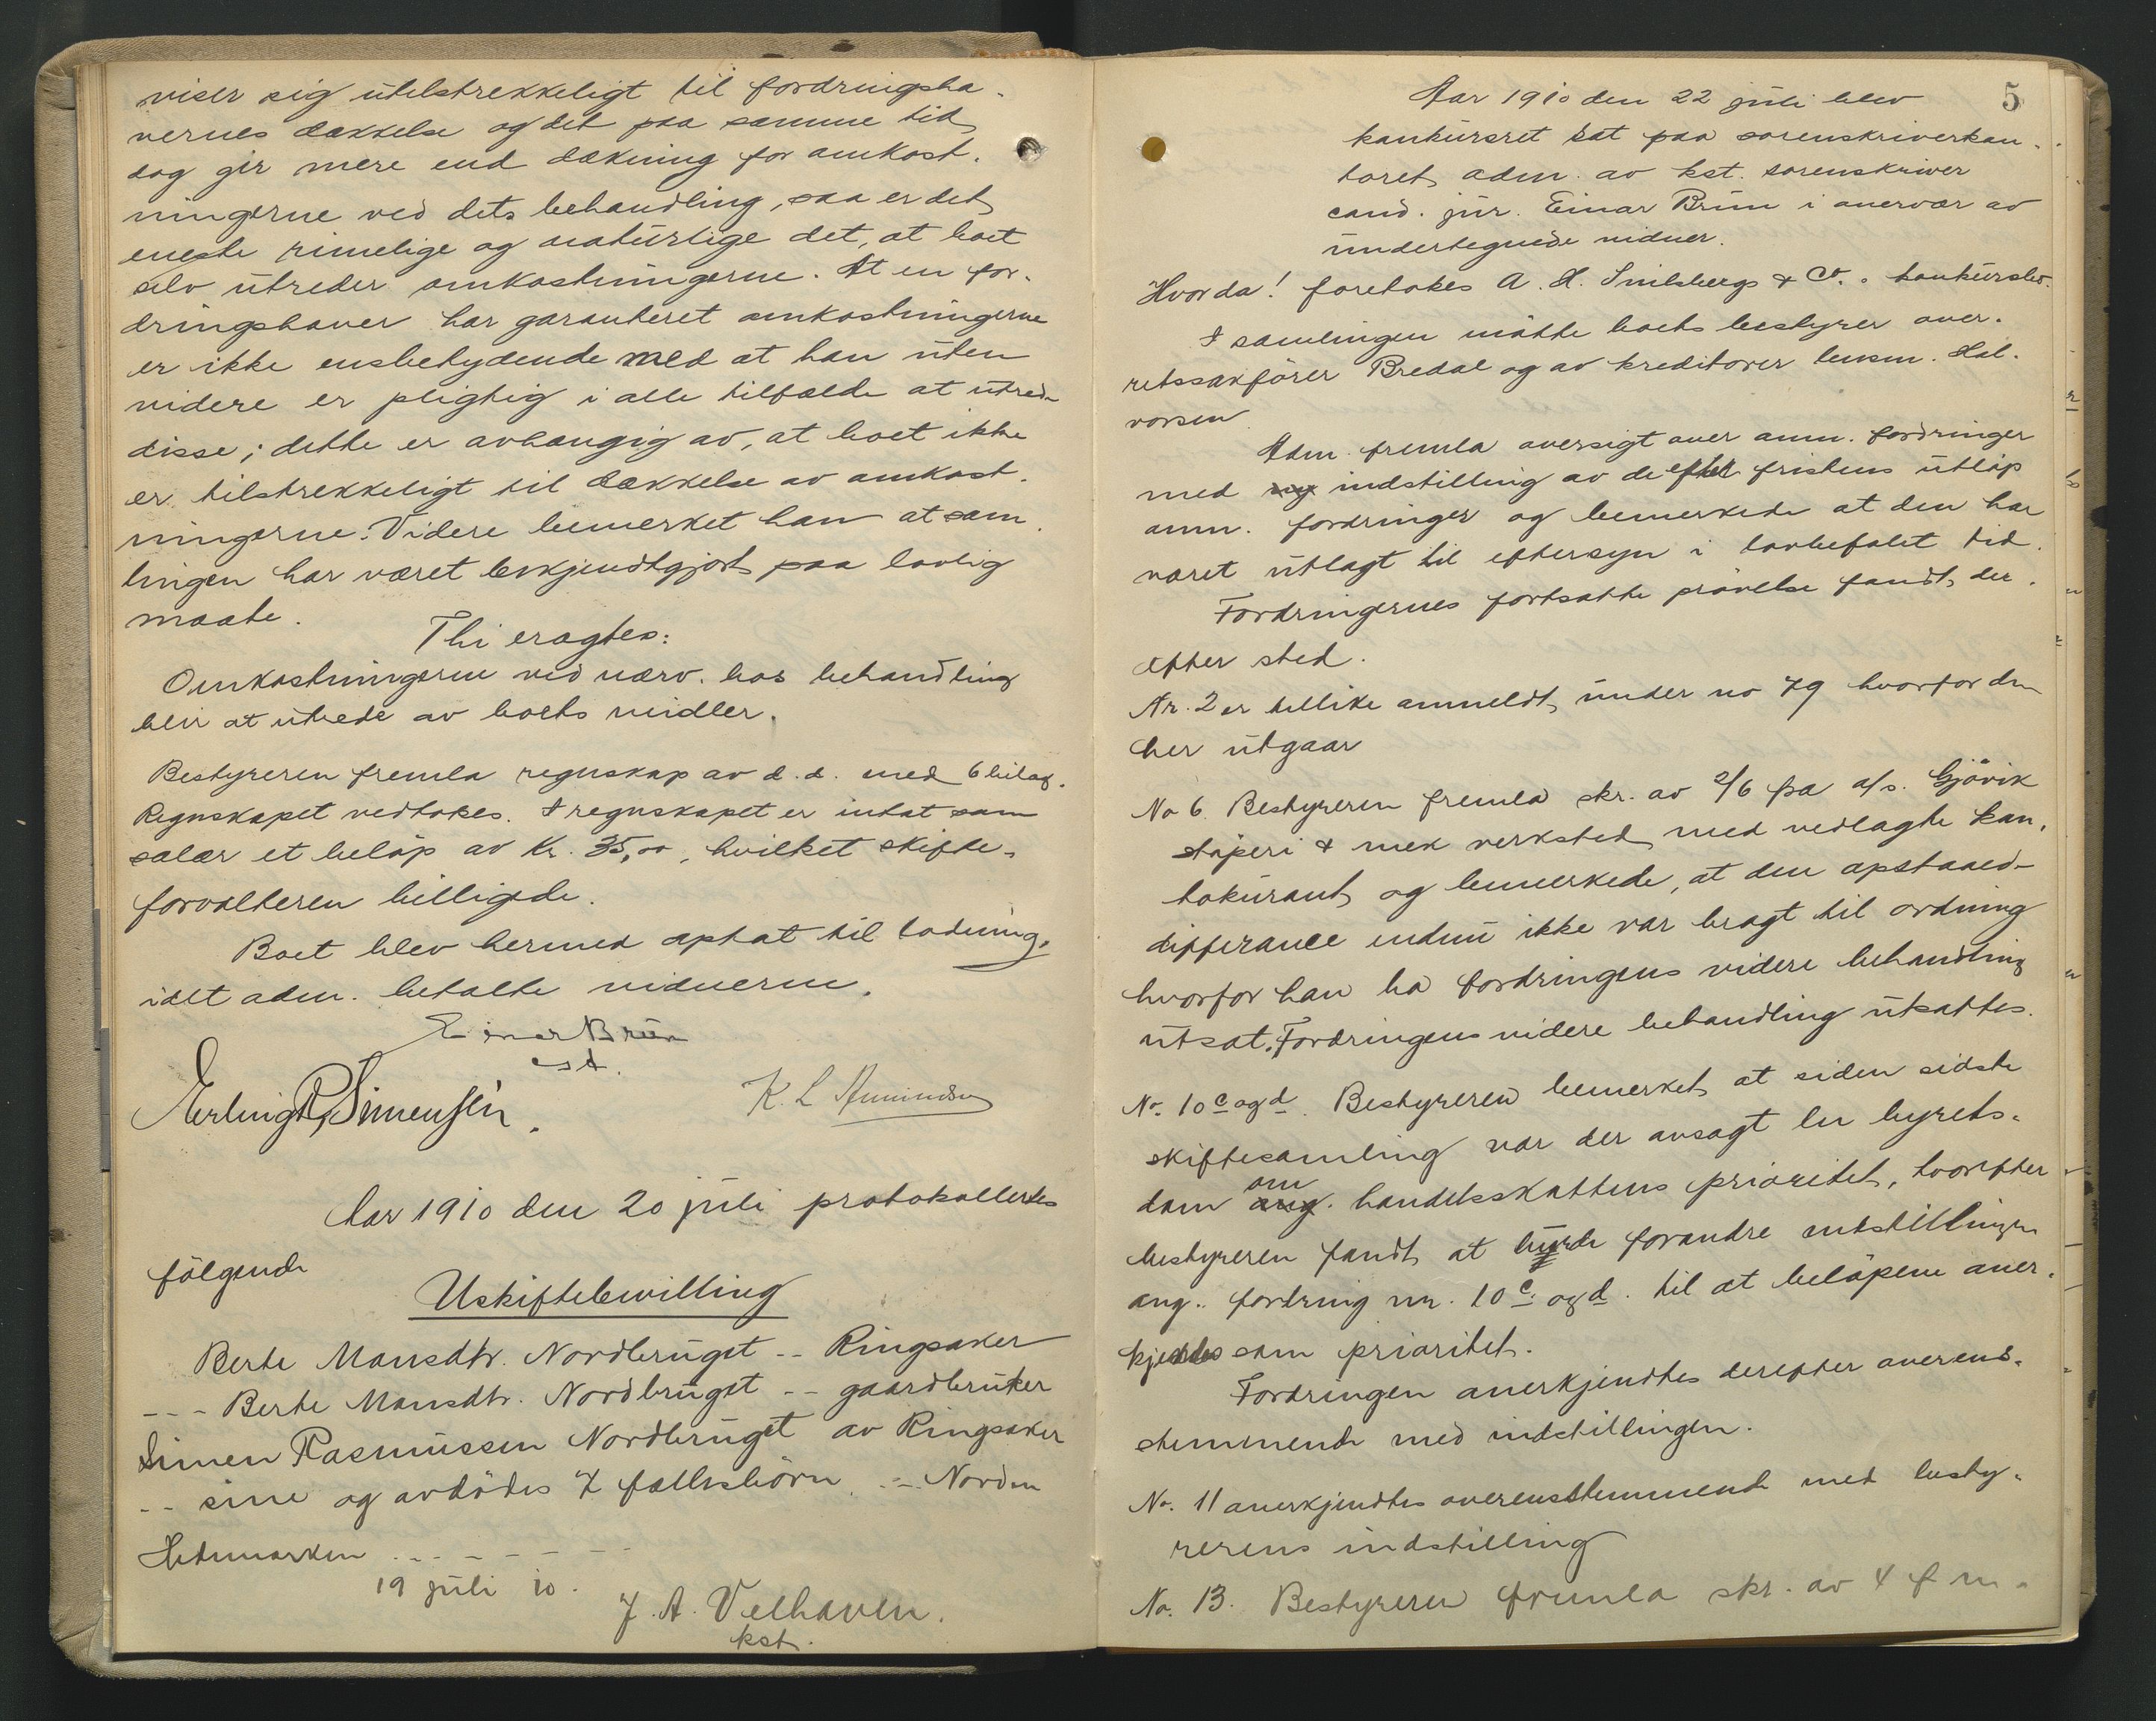 viser sig utilstrekkeligt til fordringsha-
vernes dækkelse og det paa samme tid
dog gir mere end dækning for omkost-
ningerne ved dets behandling, saa er det
eneste rimelige og naturlige det, at boet
selv utreder omkostningerne. At en for-
dringshaver har garanteret omkostningerne
er ikke ensbetydende med at han uten
videre er pligtig i alle tilfælde at utrede
disse; dette er avhængig av, at boet ikke
er tilstrekkeligt til dækkelse av omkost-
ningerne. Videre bemerket han at sam-
lingen har været bekjendtgjort paa lovlig
maate.
Thi eragtes:
Omkostningerne ved nærv. bos behandling
blir at utrede av boets midler.
Bestyreren fremla regnskap av d.d. med 6 bilag.
Regnskapet vedtokes. I regnskapet er intat som
salær et beløp av kr. 35,00, hvilket skifte-
forvalteren billigede.
Boet blev hermed optat til lodning,
idet adm. betalte vidnerne.
Einar Brun
cst.
Erling R. Simensen.
K. L Amundsen
Aar 1910 den 20 juli protokollertes
følgende
Uskiftebevilling
Berte Mansdtr. Nordbruget -- Ringsaker
--- Berte Mansdtr. Nordbruget -- gaardbruker
Simen Rasmussen Nordbruget av Ringsaker
-- sine og avdødes 7 fællesbørn. -- Norden
Hedemarken - - - - - -
19 juli 10.
J. A. Velhaven.
kst.
5
Aar 1910 den 22 juli blev
konkursret sat paa sorenskriverkon-
toret adm. av kst. sorenskriver
cand. jur. Einar Brun i overvær av
undertegnede vidner.
Hvorda! foretokes A. H. Smilsbergs & Co.s konkursbo.
I samlingen møtte boets bestyrer over-
retssakfører Bredal og av kreditorer lensm. Hal-
vorsen
Adm. fremla oversigt over anm. fordringer
med indstilling av de efter fristens utløp
anm. fordringer og bemerkede at den har
været utlagt til eftersyn i lovbefalet tid.
Fordringernes fortsatte prøvelse fandt der-
efter sted.
Nr. 2 er tillike anmeldt under no 79 hvorfor den
her utgaar
No 6. Bestyreren fremla skr. av 2/6 fra a/s. Gjøvik
støperi & mek verksted med vedlagte kon-
tokurant og bemerkede, at den opstaaede
differance endnu ikke var bragt til ordning
hvorfor han ba fordringens videre behandling
utsat. Fordringens videre behandling utsattes.
No. 10 c og d. Bestyreren bemerket at siden sidste
skiftesamling var der avsagt en byrets-
dom om handelsskattens prioritet, hvorefter
bestyreren fandt at burde forandre indstillingen
ang. fordring nr. 10 c. og d. til at beløpene aner-
kjendtes som prioritet.
Fordringen anerkjendtes derefter overens-
stemmende med indstillingen.
No. 11 anerkjendtes overensstemmende med besty-
rerens indstilling
No. 13. Bestyreren fremla skr. av 4 f m.